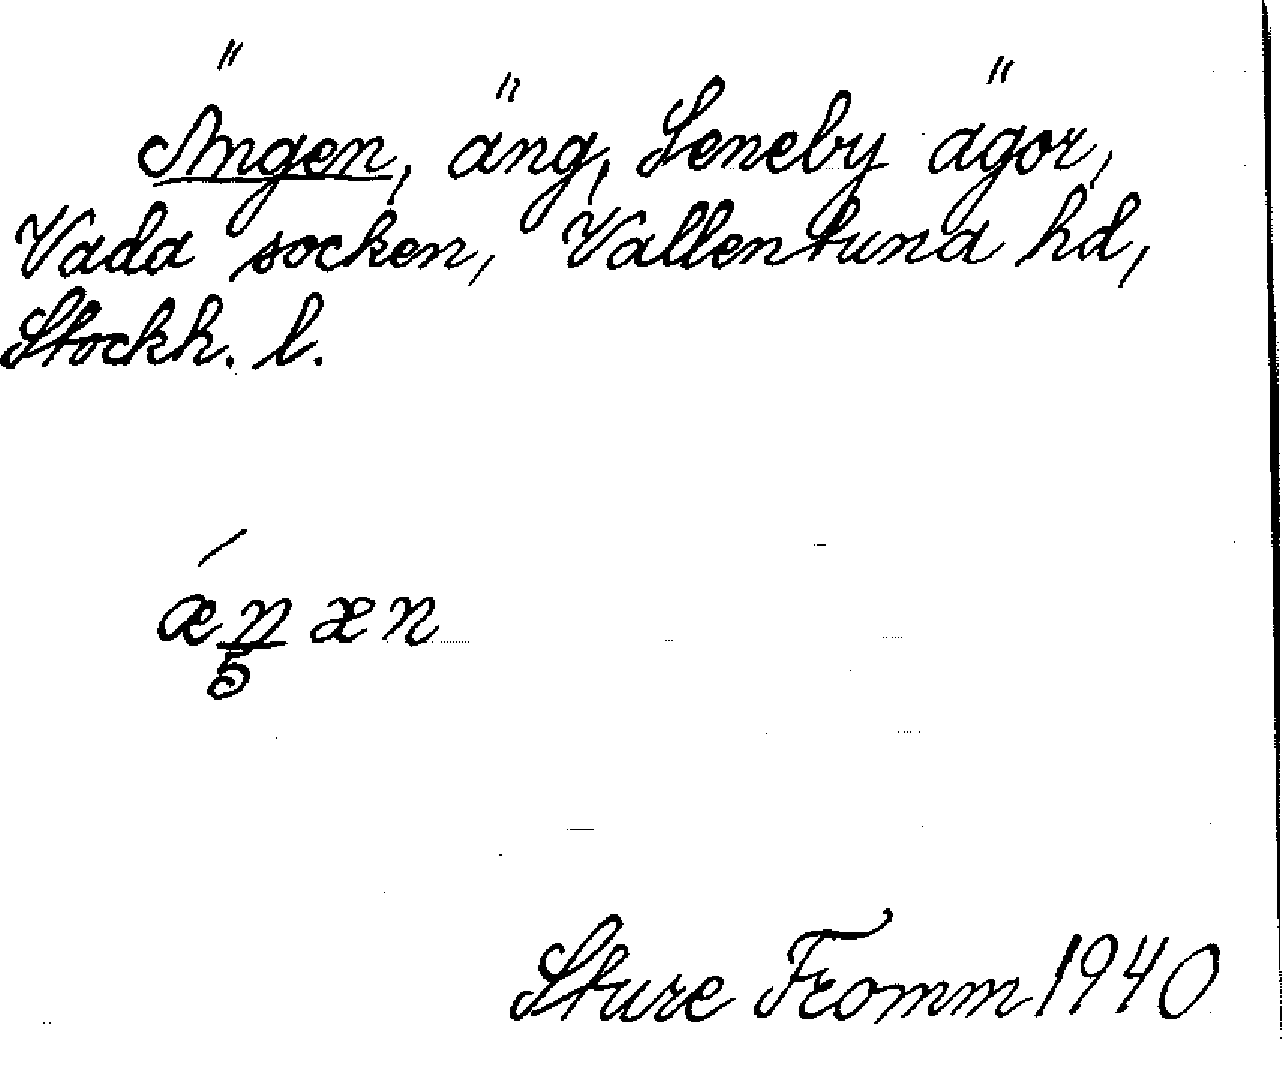 Ängen, äng, Seneby ägor,
Vada socken, Vallentuna hd,
Stockh. l.
ǽŋæn
5
Sture Fromm 1940